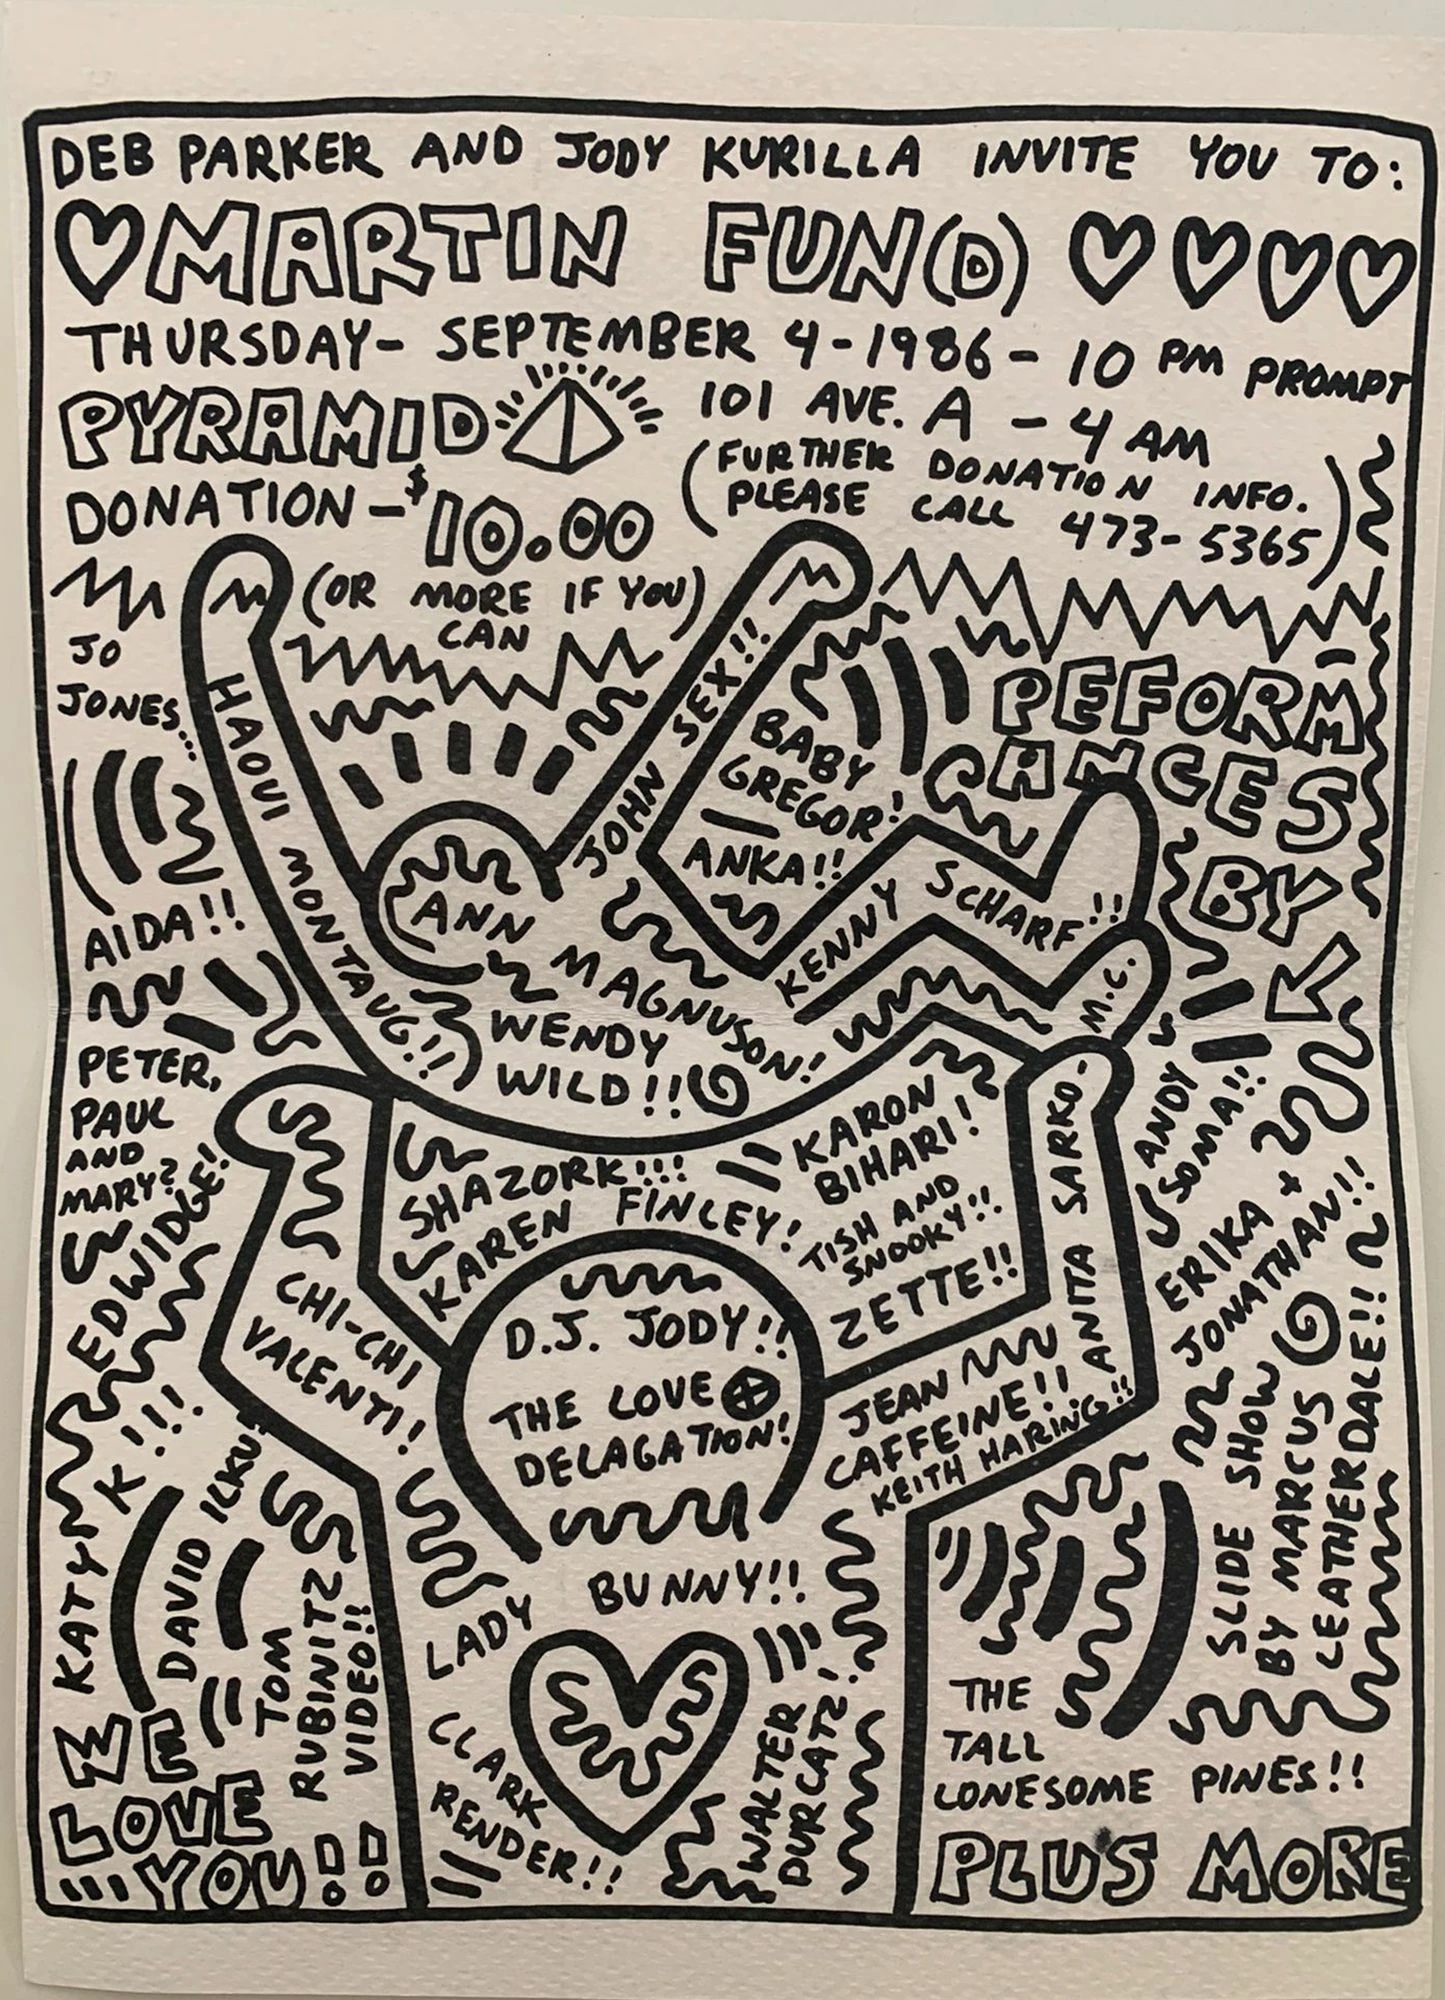 DEB PARKER AND JODY KURILLA INVITE YOU TO:
MARTIN FUN(D)
THURSDAY- SEPTEMBER 4-1986-10 PM PROMPT
PYRAMID
101 AVE. A -4 AM
(FURTHER DONATION INFO.
PLEASE CALL 473-5365)
DONATION-$10.00
(OR MORE IF YOU)
CAN
JO
JONES...
HAOUI MONTAUG!!
JOHN SEX!!
BABY
GREGOR!
ANKA!!
PEFORM
ANCES
BY
KENNY SCHARF!!
ANN MAGNUSON!
WENDY
WILD!!
AIDA!!
PETER,
PAUL
AND
MARY?
EDWIDGE!
SHAZORK!!!
KAREN FINLEY!
KARON
BIHARI!
TISH AND
SNOOKY!!
ZETTE!!
M.C.
ANITA SARKO-
ANDY
SOMA!!
ERIKA +
JONATHAN!!
CHI-CHI
VALENTI!
D.J. JODY!!
THE LOVE
DELAGATION!
JEAN
CAFFEINE!!
KEITH HARING!!
SLIDE SHOW
BY MARCUS
LEATHERDALE!!
KATY K!!!
DAVID ILKU?
TOM
RUBINITZ
VIDEO!!
LADY BUNNY!!
CLARK
RENDER!!
WALTER
DURCATZ!
THE
TALL
LONESOME PINES!!
WE
LOVE
YOU!!
PLUS MORE